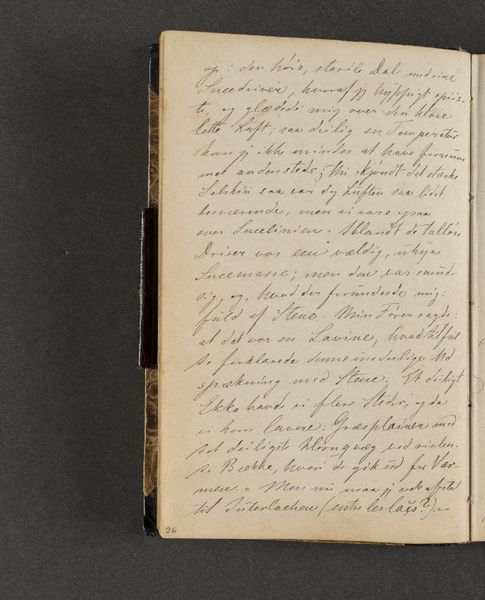 op: den høie, sterile Dal med sine
Sneedriver, hvoraf jeg hyppigt spiis-
te, og glædede mig over den klare
lette Luft; saa deilig en Temperatur
kan jeg ikke mindes at have fornum-
met andensteds; thi skjøndt det stærke
Solskin saa var dog Luften saa lidt
besværende, men vi vare ogsaa
over Sneelinien. Iblandt de talløse
Driver var een vældig, uhyre
Sneemasse; men den var smud-
sig, og, hvad der forundrede mig:
fuld af Stene. Min Fører sagde:
at det var en Lavine, hvad tilful
de forklarede denne Ud
spækning med Stene. Et deiligt
Ekko havde vi flere Steder, og da
vi kom lavere. Græsplainer med
det deiligste Hornqvæg ved
Bække, hvori de gik ud for Var-
men. Men nu maa jeg nok afsted
til Interlachen (entre les lacs?)
26